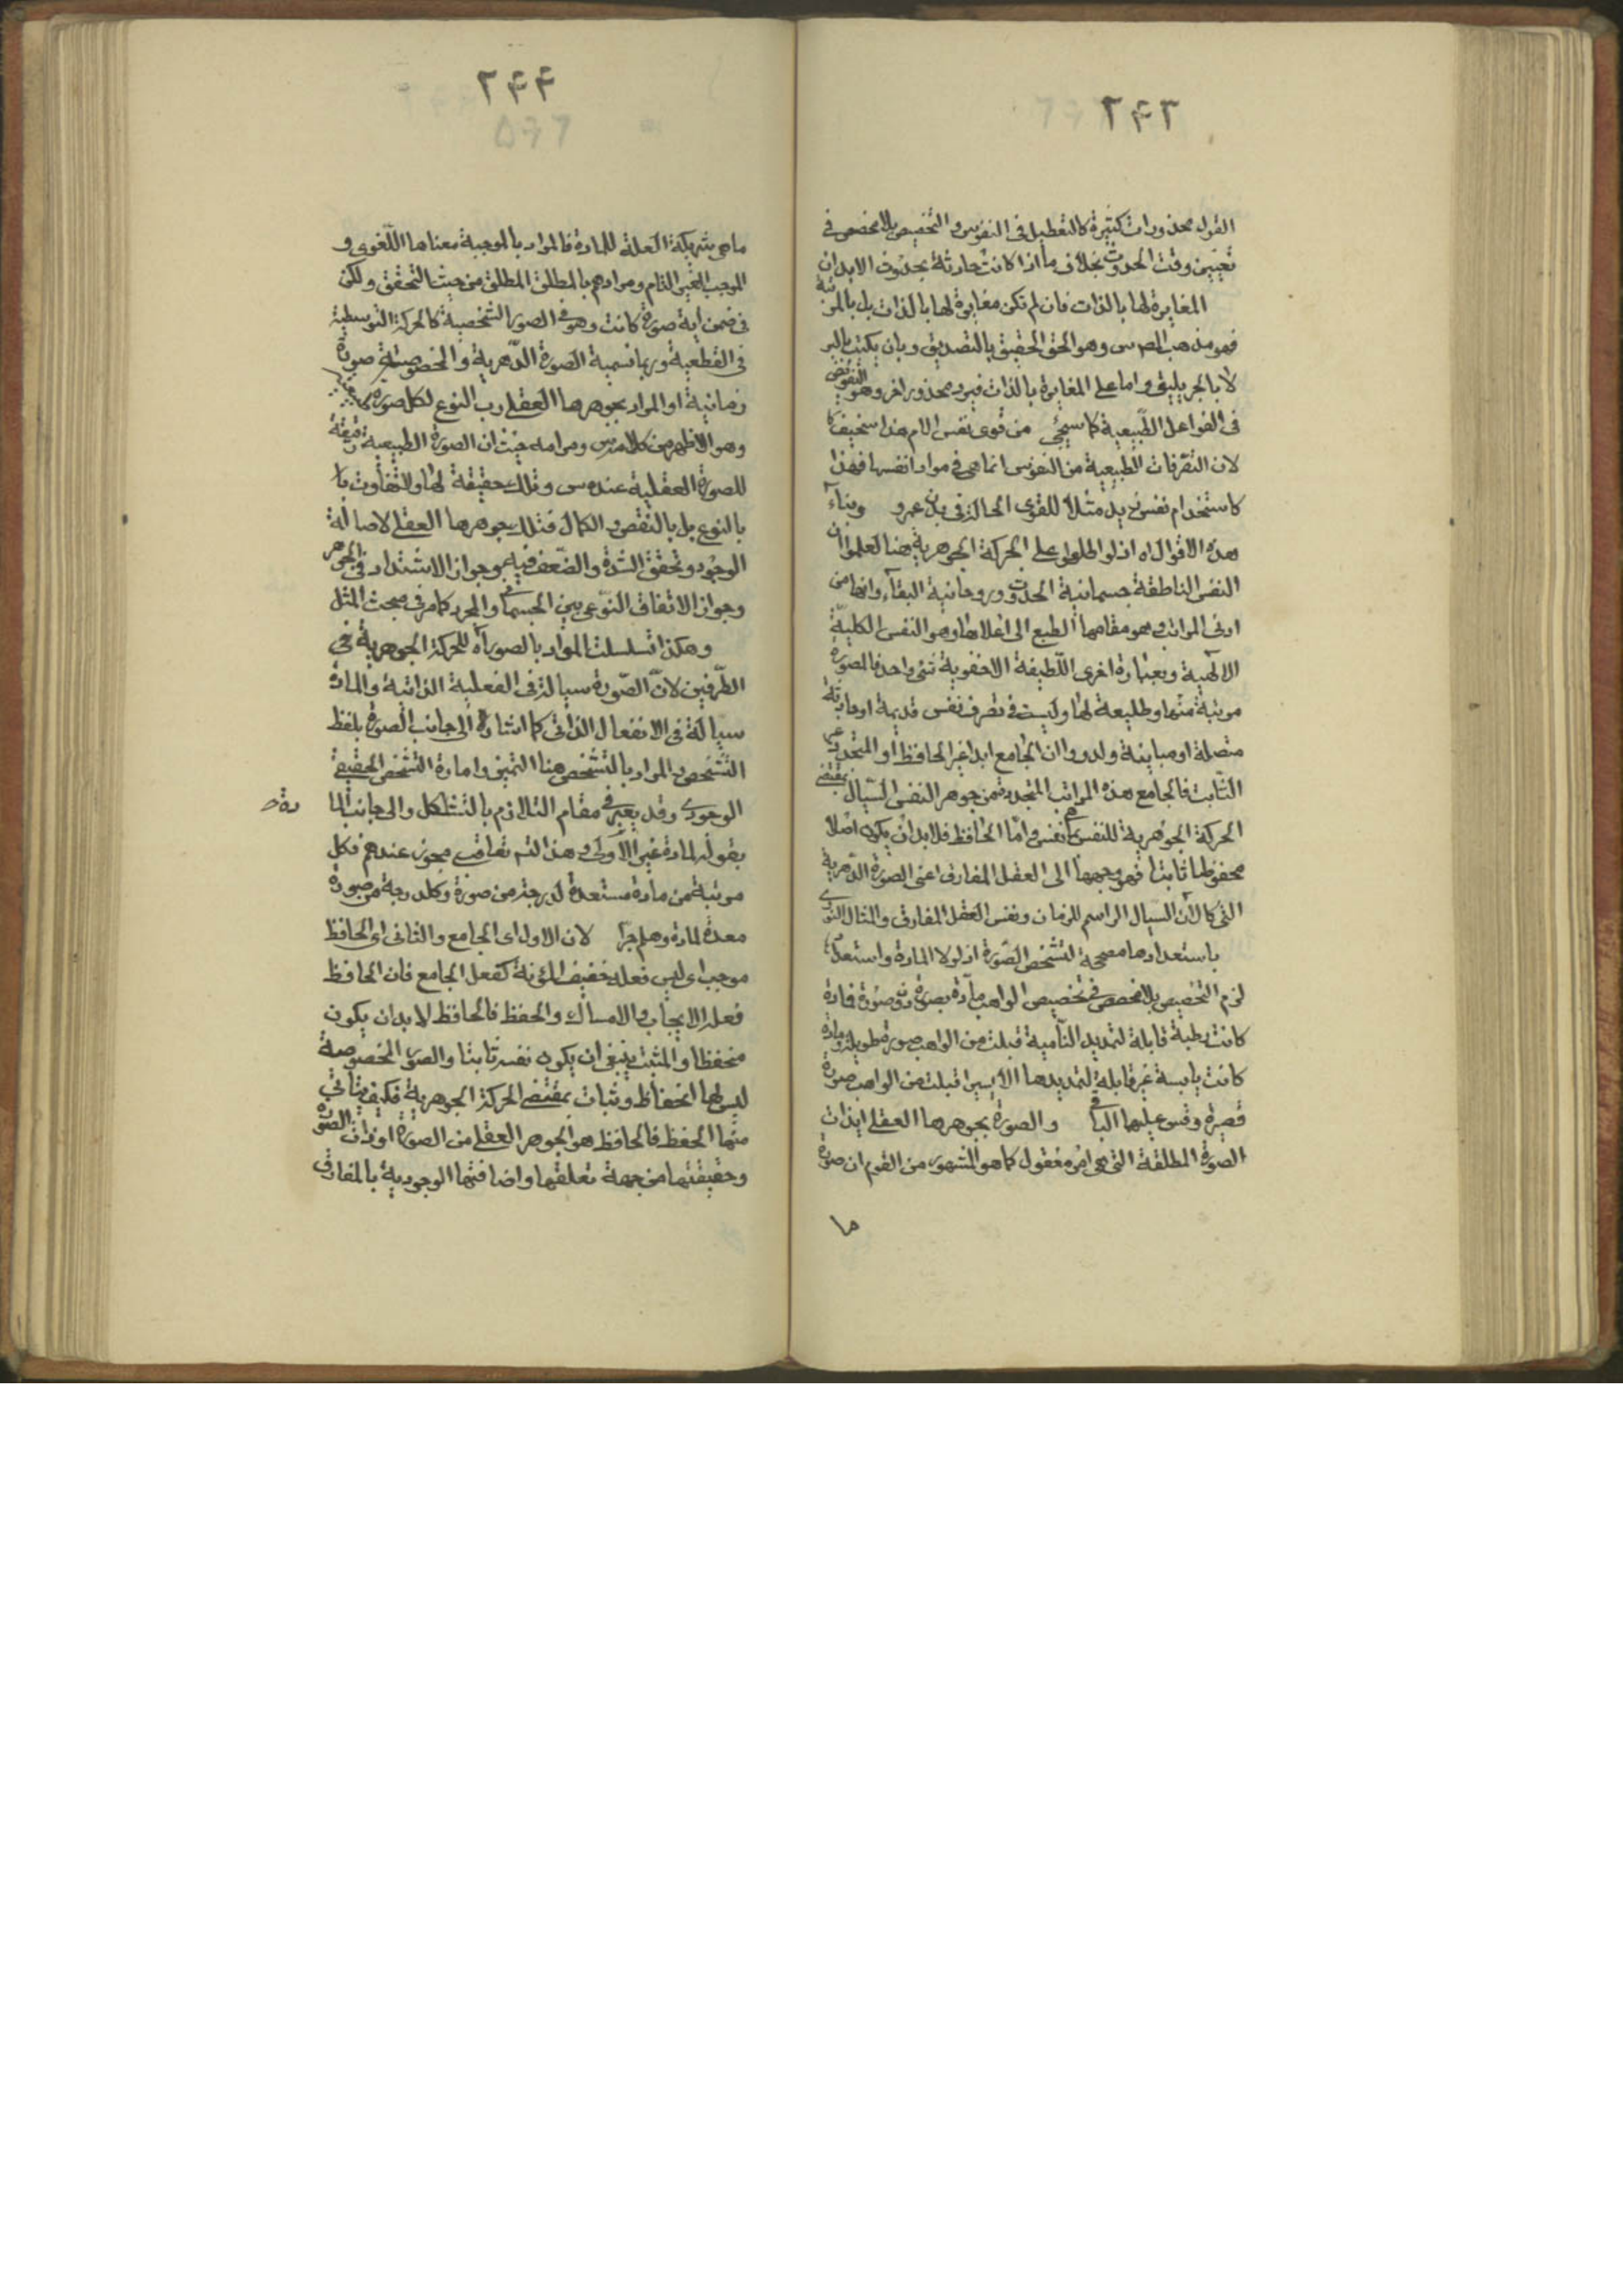 ٢٤٣
القول محذورات كثيرة كالتعطيل فى النفوس و التخصيص بلا مخصص فى
تعيين وقت الحدوث بخلاف ما اذا كانت حادثة بحدوث الابدان
المغايرة لها بالذات فان لم تكن مغايرة لها بالذات بل بالمرتبة
فهو مذهب المص س وهو الحق الحقيق بالتصديق وبان يكتب بالبر
لا بالحبر يليق واما على المغايرة بالذات فيرد محذور اخر وهو التفويض
فى الفواعل الطبيعية كما سيجئ من قوى نفس الام هذا سخيف
لان التصرفات الطبيعية من النفوس انما هى فى مواد انفسها فهذا
كاستخدام نفس زيد مثلا للقوى الحالة فى بدن عمرو وبناء
هذه الاقوال اه اذ لو اطلعوا على الحركة الجوهرية هنا لعلموا ان
النفس الناطقة جسمانية الحدوث وروحانية البقاء وانها من
ادنى المراتب وهو مقامها الطبع الى اعلاها وهو النفس الكلية
الالهية وبعبارة اخرى اللطيفة الاخفوية شئ واحد فالصورة
مرتبة منها وطليعة لها وليست فى تصرف نفس قديمة او حادثة
متصلة او مباينة ولدروا ان الجامع ابدا غير الحافظ او المتجدد غير
الثابت فالجامع هذه المراتب المتجددة من جوهر النفس السيال بمقتضى
الحركة الجوهرية للنفس بما هى نفس واما الحافظ فلا بد ان يكون اصلا
محفوظا ثابتا فهو وجهها الى العقل المفارق اعنى الصورة الدهرية
التى كالآن السيال الراسم للزمان ونفس العقل المفارق والمثال النورى
باستعدادها مصححة لتشخص الصورة اذ لولا المادة واستعدادها
لزم التخصيص بلا مخصص فى تخصيص الواهب مادة بصورة دون صورة فمادة
كانت رطبة قابلة لتمديد النامية قبلت من الواهب صورة طويلة ومادة
كانت يابسة غير قابلة لتمديدها الا يسيرا قبلت من الواهب صورة
قصيرة وقس عليها الباقى والصورة بجوهرها العقلى اى ذات
الصورة المطلقة التى هى امر معقول كما هو المشهور من القوم ان صورة
ما
٢٤٤
ما هى شريكة العلة للمادة فالمراد بالموجبة معناها اللغوى و
الموجب الغير التام ومرادهم بالمطلق المطلق من حيث التحقق ولكن
فى ضمن اية صورة كانت وهو فى الصور الشخصية كالحركة التوسطية
فى القطعية وربما نسميه الصورة الدهرية والخصوصية صورة
زمانية او المراد بجوهرها العقلى رب النوع لكل صورة
وهو الاظهر من كلامه س ومرامه حيث ان الصورة الطبيعية رقيقة
للصورة العقلية عنده س وتلك حقيقة لها والتفاوت لا
بالنوع بل بالنقص و الكمال فتلك جوهرها العقلى لاصالة
الوجود وتحقق الشدة والضعف فيه وجواز الاشتداد فى الجوهر
وجواز الاتفاق النوعى بين الجسمانى والمجرد كما مر فى مبحث المثل
وهكذا تسلسلت المواد بالصور اه للحركة الجوهرية فى
الطرفين لان الصورة سيالة فى الفعلية الذاتية والمادة
سيالة فى الانفعال الذاتى كما اشار الى جانب الصورة بلفظ
التشخص والمراد بالتشخص هنا التميز وامارة التشخص الحقيقى
الوجودى وقد يعبر فى مقام التلازم بالتشكل والى جانب الما
دة
بقوله لمادة غير الاولى وهذا التـ تعاقب مجوز عندهم فكل
مرتبة من مادة مستعدة لدرجة من صورة وكل درجة من صورة
معدة لمادة وهلم جرا لان الاول اى الجامع والثانى اى الحافظ
موجب اى ليس فعله خفيف المؤنة كفعل الجامع فان الحافظ
فعله الايجاب والامساك والحفظ فالحافظ لا بد ان يكون
منحفظا والمثبت ينبغى ان يكون نفسه ثابتا والصور المخصوصة
ليس لها انحفاظ وثبات بمقتضى الحركة الجوهرية فكيف يتاتى
منها الحفظ فالحافظ هو الجوهر العقلى من الصورة او ذات الصورة
وحقيقتها من جهة تعلقها واضافتها الوجودية بالمفارق